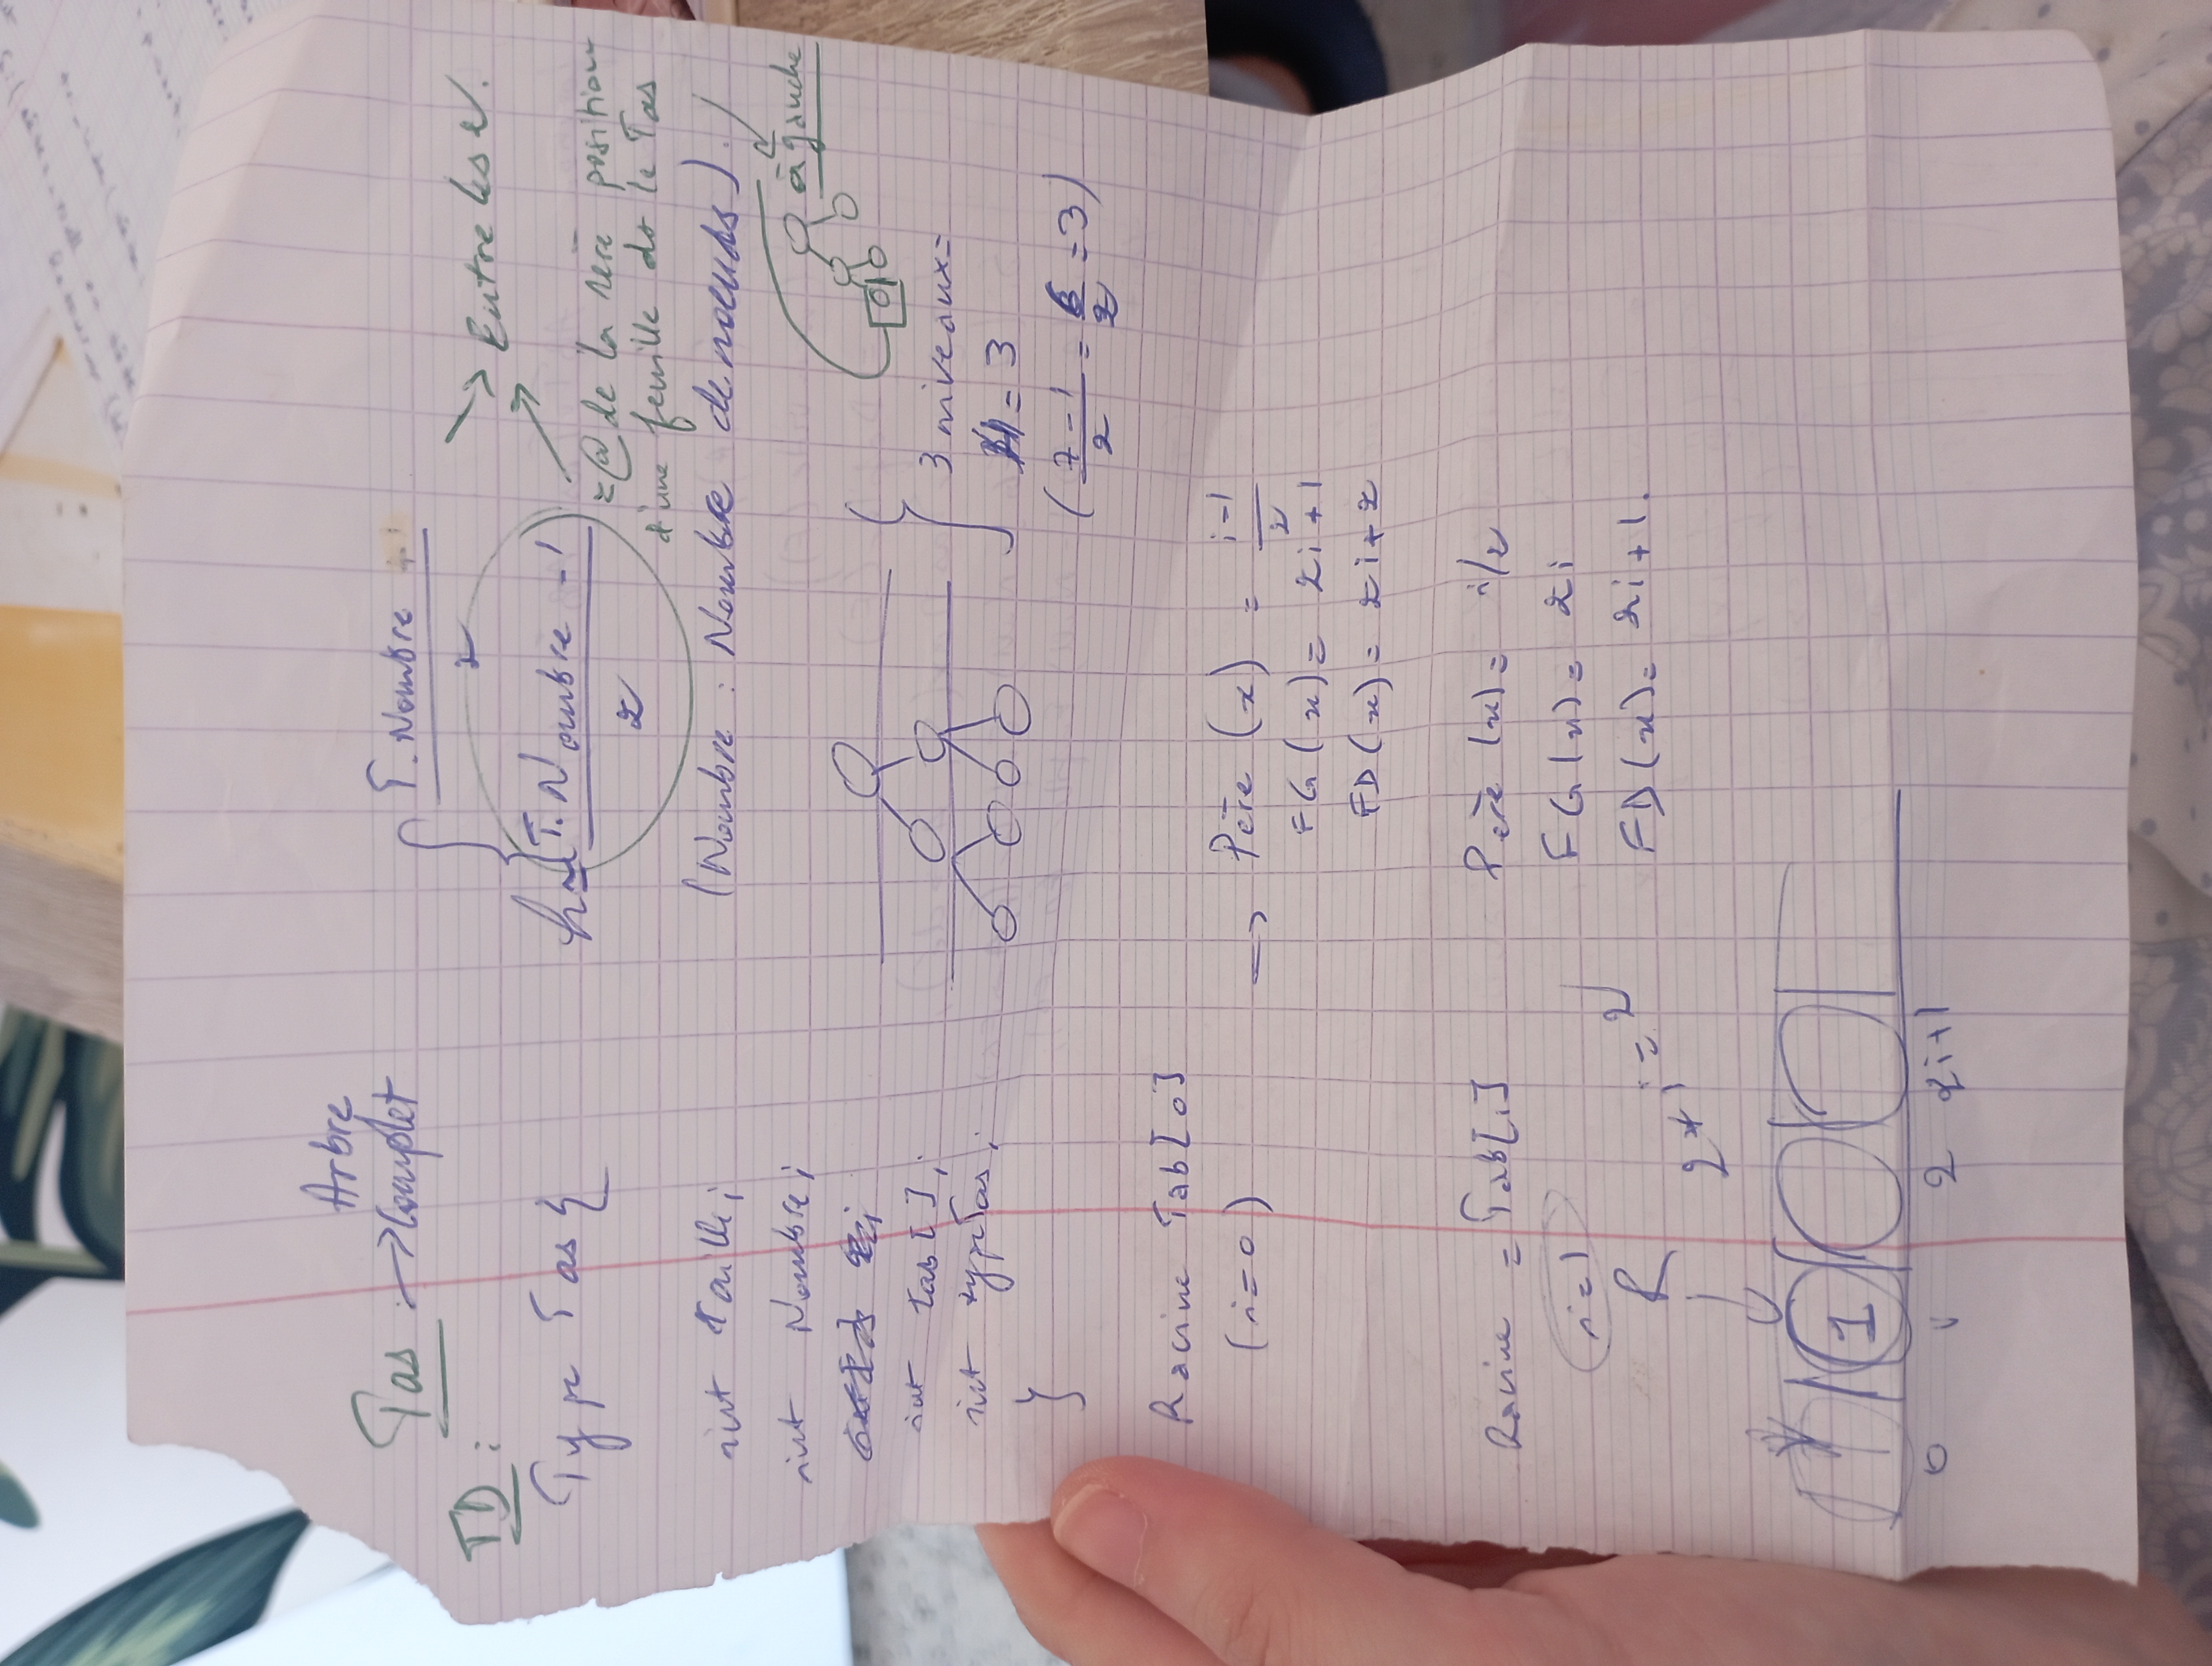 Arbre
Tas → Complet
TD :
Type Tas {
int taille;
int Nombre;
int tas[];
int typeTas;
}
T. Nombre + 1
2
h = T. Nombre - 1
2
Entre les 2.
= @ de la 1ère position
d'une feuille ds le Tas
(Nombre : Nombre de noeuds).
à gauche
3 niveaux =
H = 3
( 7 - 1 / 2 = 6 / 2 = 3 )
Racine Tab[0]
(i=0)
→ Père (x) = i-1 / 2
FG (x) = 2i + 1
FD (x) = 2i + 2
Racine = Tab[1]
i=1
Père (x) = i/2
FG (x) = 2i
FD (x) = 2i + 1.
R
2 * i = 2
1
0 1 2 2i+1